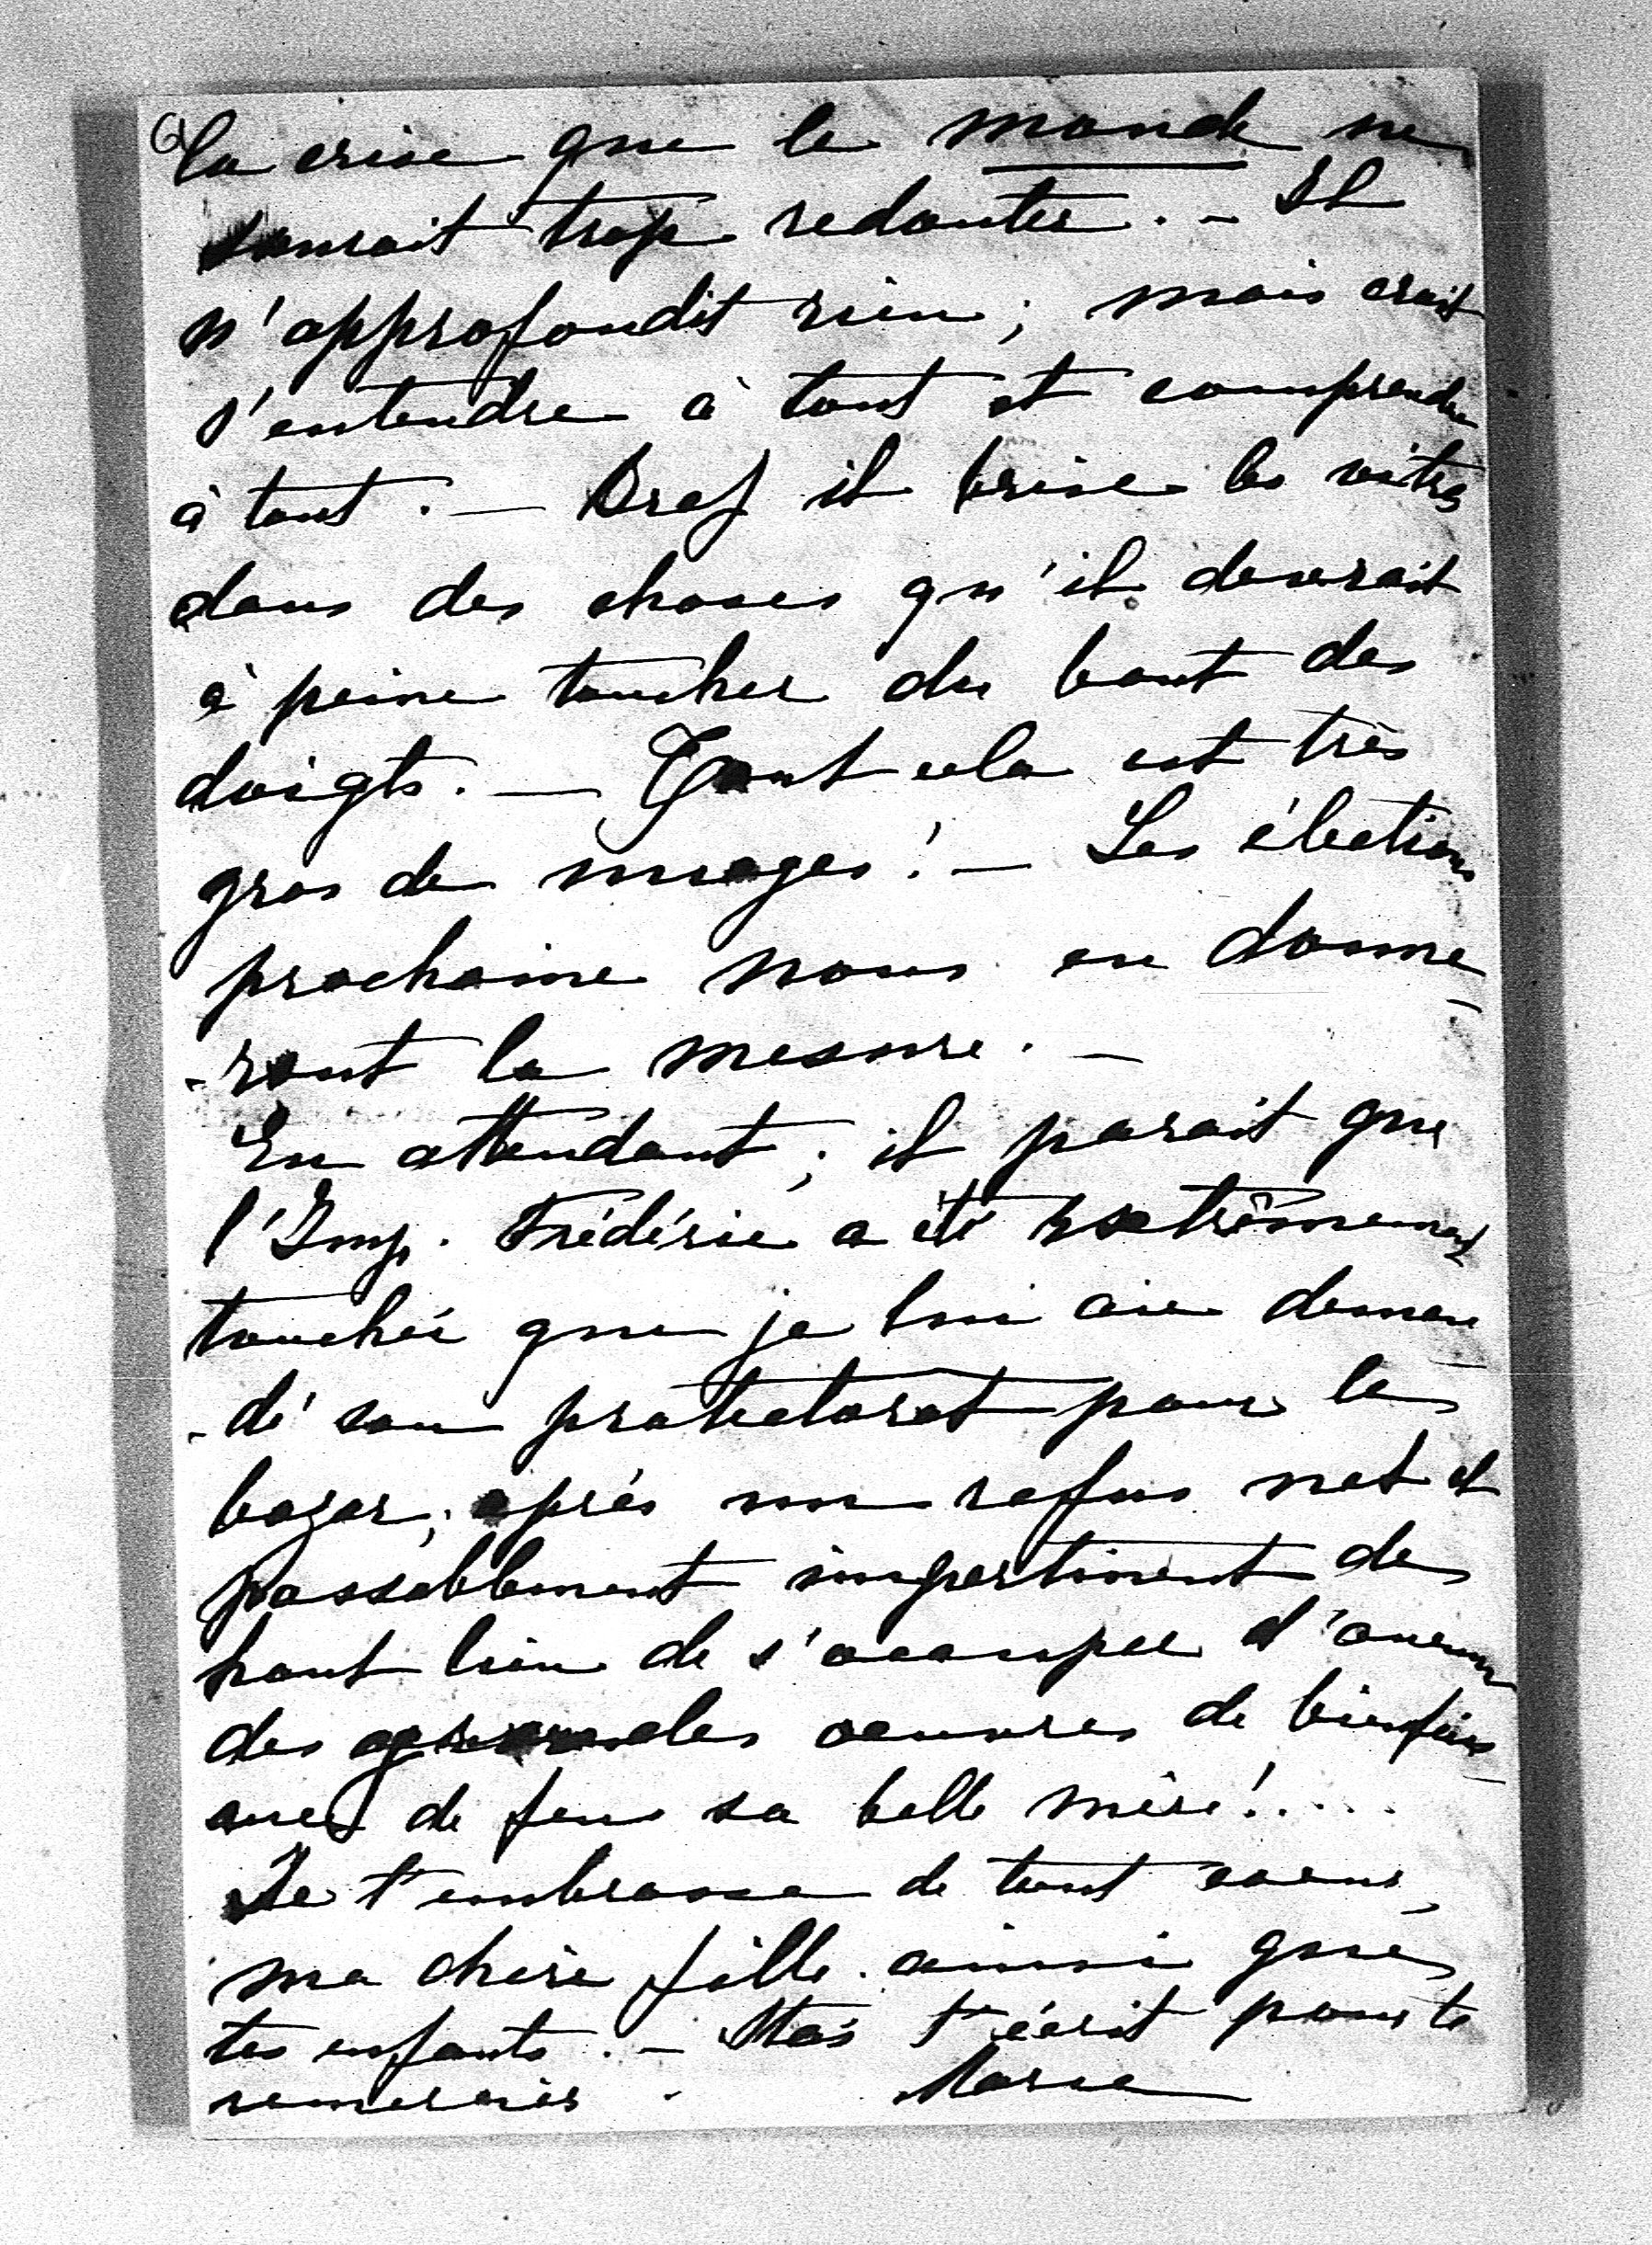 la crise que le monde ne
saurait trop redouter. - Il
n'approfondit rien; mais croit
s'entendre à tout et comprendre
à tout. — Bref il brise les vitres
dans des choses qu'il devrait
à peine toucher du bout des
doigts. — Tout cela est très
gros de nuages! — Les élections
prochaine nous en donne-
-ront la mesure. —
En attendant, il parait que
l'Imp. Frédéric a été extrêmement
touchée que je lui aie deman-
-dé son protectorat pour le
bazar, après un refus net et
passablement impertinent de
haut lieu de s'occuper d'aucune
des grandes oeuvres de bienfais-
ance de feue sa belle mère!....
Je t'embrasse de tout coeur,
ma chère fille ainsi que
tes enfants. - t'écrit pour te
remercier. Marie